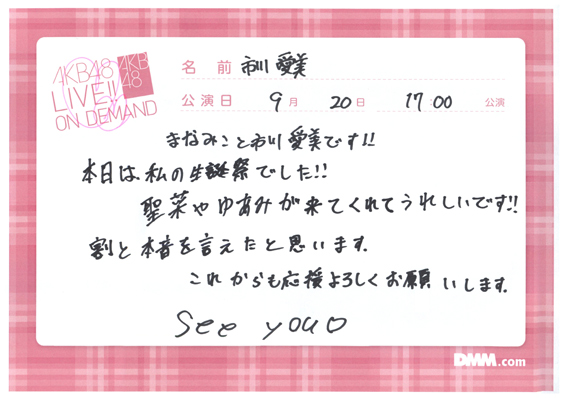 AKB48
LIVE!!
ON DEMAND
AKB
48
名 前 市川 愛美
公演日 9月 20日 17:00 公演
まなみこと市川愛美です!!
本日は私の生誕祭でした!!
聖菜やゆあみが来てくれてうれしいです!!
割と本音を言えたと思います.
これからも応援よろしくお願いします.
See you
DMM.com